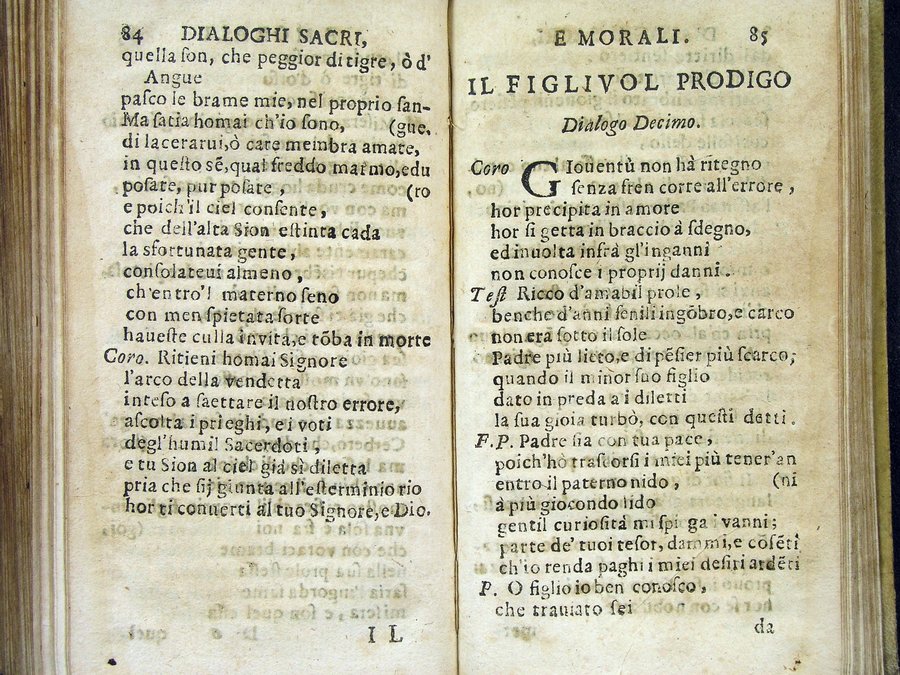 84 DIALOGHI SACRI,
quella ſon, che peggior di tigre, ò d'
Angue
paſco le brame mie, nel proprio ſan-
Ma ſatia homai ch'io ſono, (gue,
di lacerarui, ò care membra amate,
in queſto ſẽ, qual freddo marmo, edu
poſate, pur poſate, (ro
e poich'il ciel conſente,
che dell'alta Sion eſtinta cada
la sfortunata gente,
conſolateui almeno,
ch'entro'l materno ſeno
con men ſpietata ſorte
haueſte culla in vita, e tõba in morte
Coro. Ritieni homai Signore
l'arco della vendetta
inteſo a ſaettare il noſtro errore,
aſcolta i prieghi, e i voti
degl'humil Sacerdoti,
e tu Sion al ciel già sì diletta
pria che ſij giunta all'eſterminio rio
hor ti conuerti al tuo Signore, e Dio.
I L
E MORALI. 85
IL FIGLIVOL PRODIGO
Dialogo Decimo.
Coro GIouentù non hà ritegno
ſenza fren corre all'errore,
hor precipita in amore
hor ſi getta in braccio à ſdegno,
ed inuolta infrà gl'inganni
non conoſce i proprij danni.
Teſt Ricco d'amabil prole,
benche d'anni ſenili ingõbro, e carco
non era ſotto il ſole
Padre più lieto, e di pẽſier più ſcarco;
quando il minor ſuo figlio
dato in preda a i diletti
la ſua gioia turbò, con queſti detti.
F.P. Padre ſia con tua pace,
poich'hò traſcorſi i miei più tener'an
entro il paterno nido, (ni
à più giocondo lido
gentil curioſità mi ſpiega i vanni;
parte de' tuoi teſor, dammi, e cõſẽti
ch'io renda paghi i miei deſiri ardẽti
P. O figlio io ben conoſco,
che trauiato ſei
da